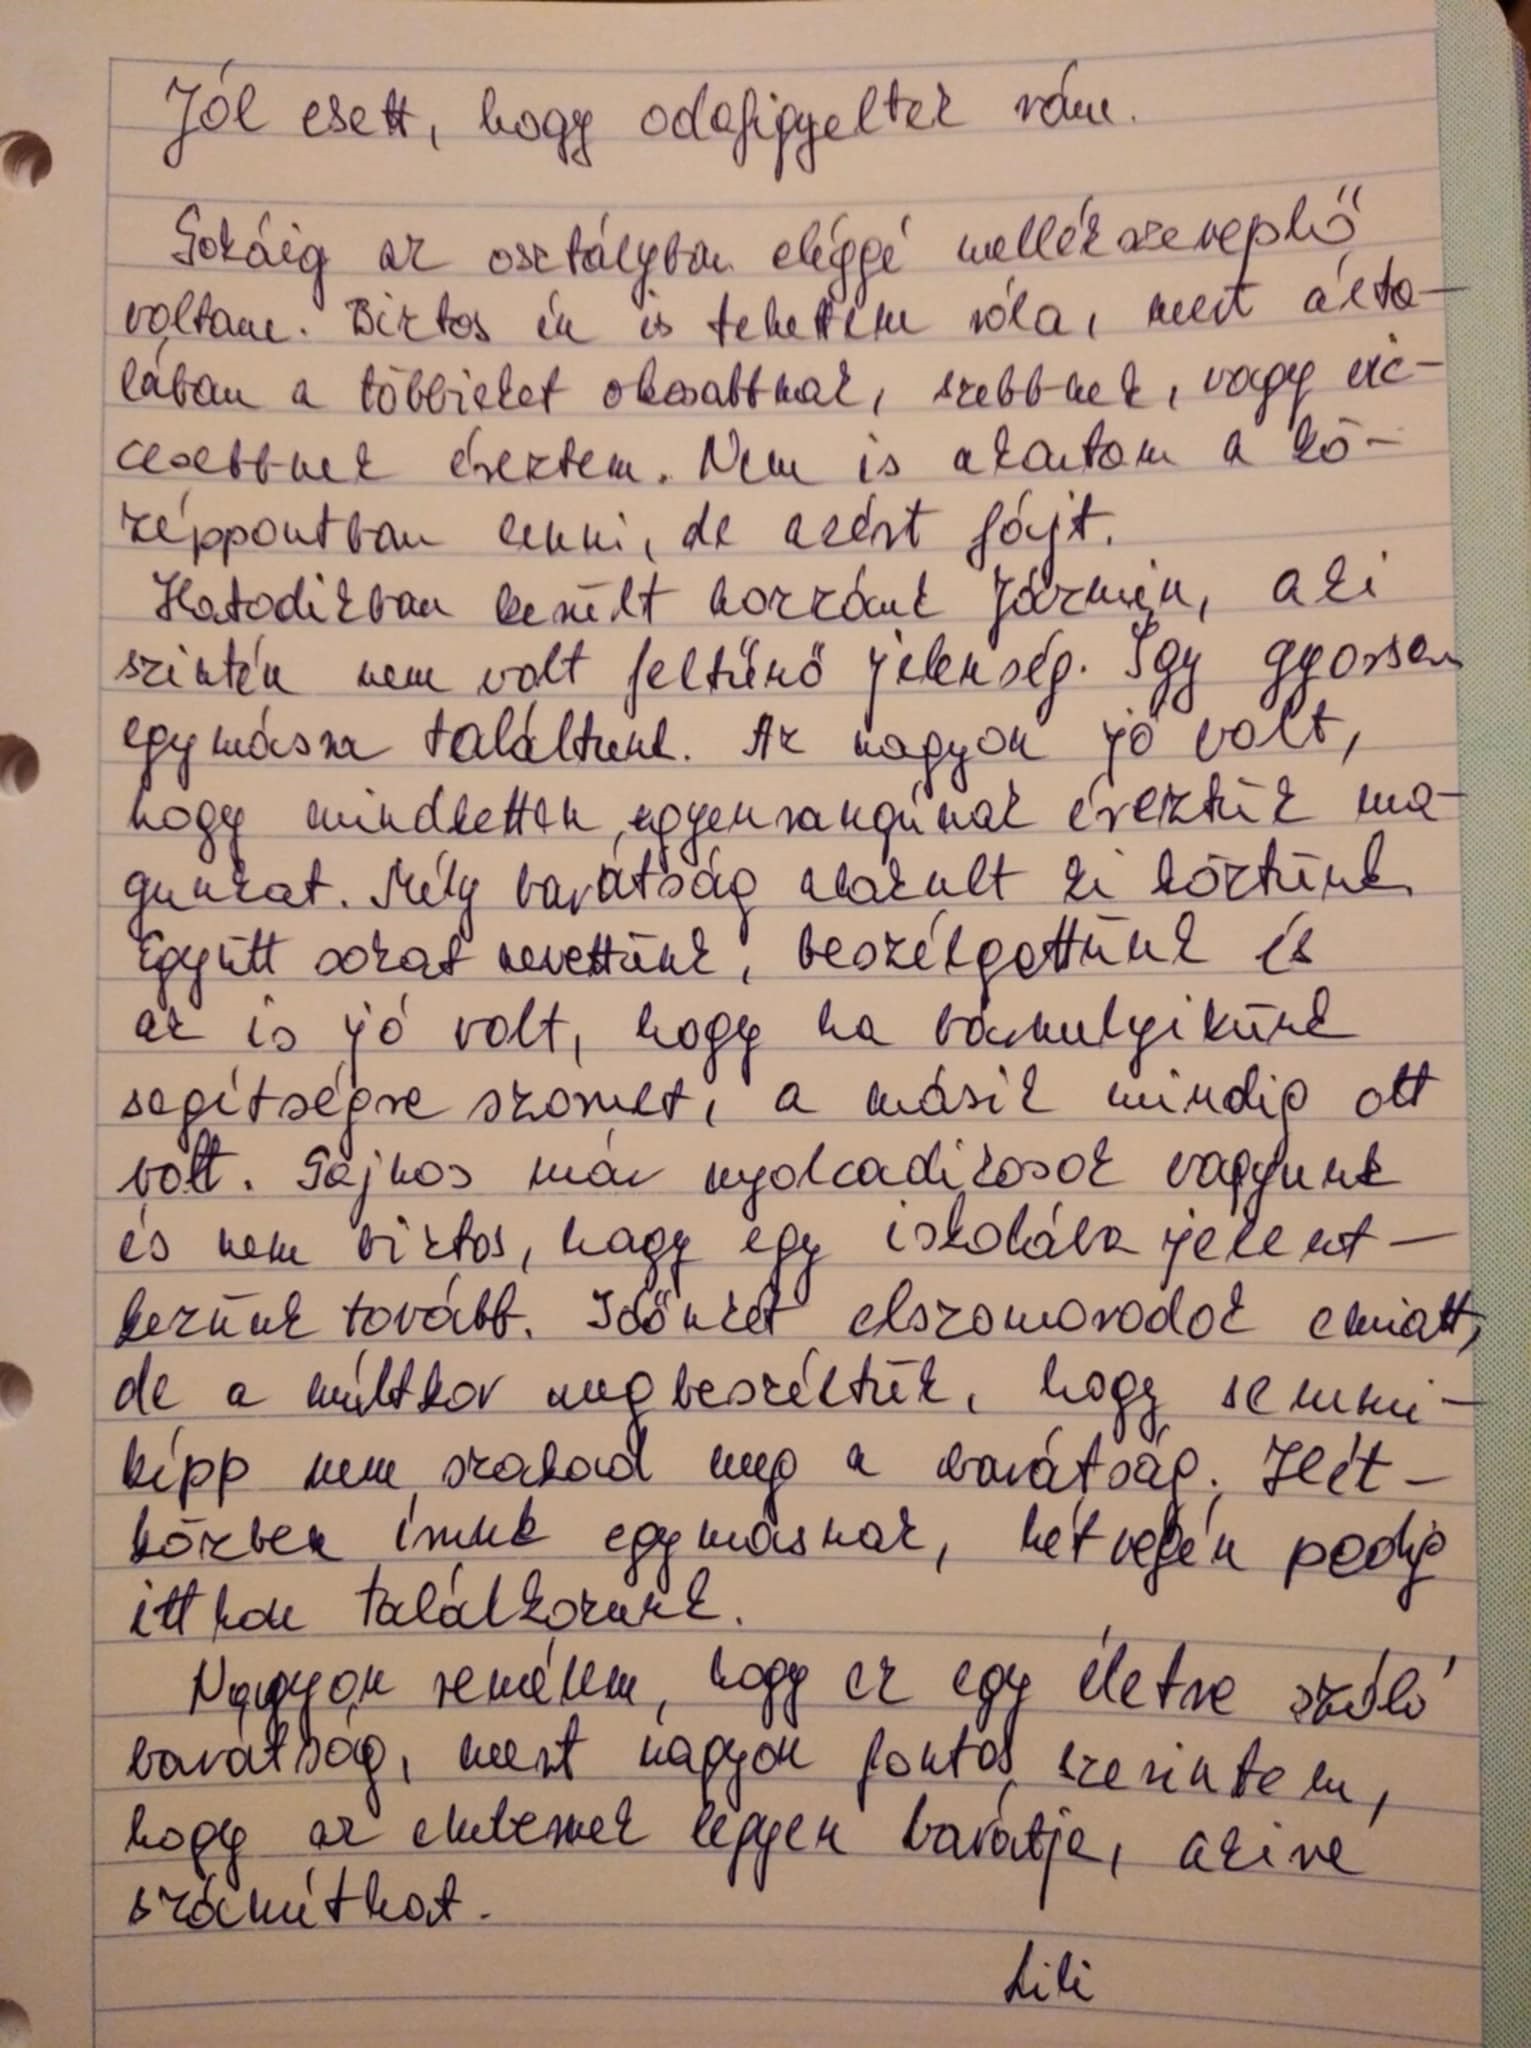 Jól esett, hogy odafigyeltek rám.
Sokáig az osztályban eléggé mellékszereplő
voltam. Biztos én is tehettem róla, mert álta-
lában a többieket okosabbnak, szebbnek, vagy vic-
cesebbnek éreztem. Nem is akartam a kö-
zéppontban lenni, de azért fájt.
Hatodikban került hozzánk Jázmin, aki
szintén nem volt feltűnő jelenség. Így gyorsan
egymásra találtunk. Az nagyon jó volt,
hogy mindketten egyenrangúnak éreztük ma-
gunkat. Mély barátság alakult ki köztünk.
Együtt sokat nevettünk, beszélgettünk és
az is jó volt, hogy ha bármelyikünk
segítségre szorult, a másik mindig ott
volt. Sajnos már nyolcadikosok vagyunk
és nem biztos, hogy egy iskolába jelent-
kezünk tovább. Időnként elszomorodok emiatt,
de a múltkor megbeszéltük, hogy semmi-
képp nem szakad meg a barátság. Hét-
közben írunk egymásnak, hétvégén pedig
itthon találkozunk.
Nagyon remélem, hogy ez egy életre szóló
barátság, mert nagyon fontos szerintem,
hogy az embernek legyen barátja, akire
számíthat.
Lili